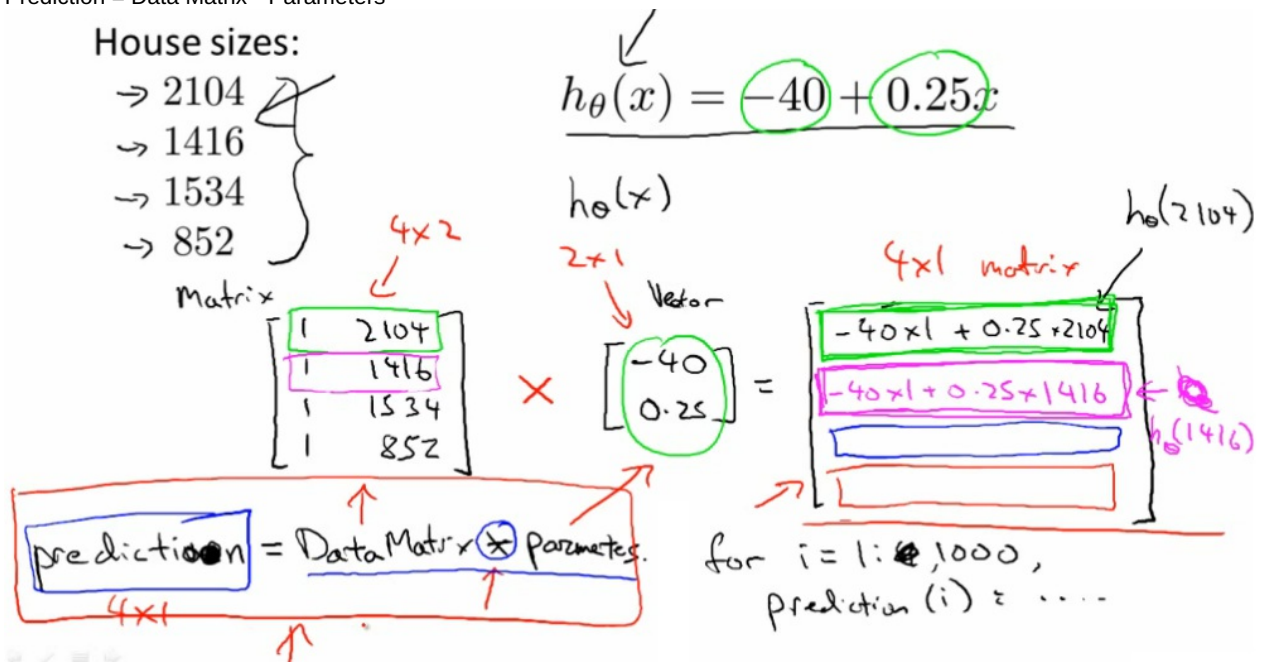 Prediction = Data Matrix * Parameters
House sizes:
→ 2104
→ 1416
→ 1534
→ 852
hθ(x) = −40 + 0.25x
hθ(x)
hθ(2104)
4×2
2×1
4×1 matrix
Matrix
Vector
1 2104
1 1416
1 1534
1 852
×
-40
0.25
=
-40×1 + 0.25×2104
-40×1 + 0.25×1416
hθ(1416)
prediction = DataMatrix * parmetes.
4×1
for i = 1: ,1000,
prediction(i) = ....